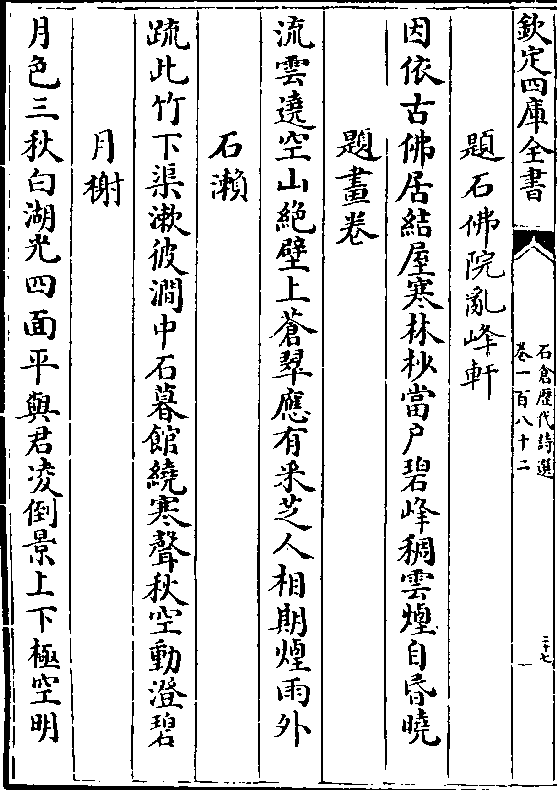 欽定四庫全書
石倉歷代詩選
卷一百八十二
二十七
題石佛院亂峰軒
因依古佛居結屋寒林杪當户碧峰稠雲煙自昏曉
題畫卷
流雲遶空山絶壁上蒼翠應有采芝人相期煙雨外
石瀨
疏此竹下渠漱彼澗中石暮館繞寒聲秋空動澄碧
月榭
月色三秋白湖光四面平與君凌倒景上下極空明